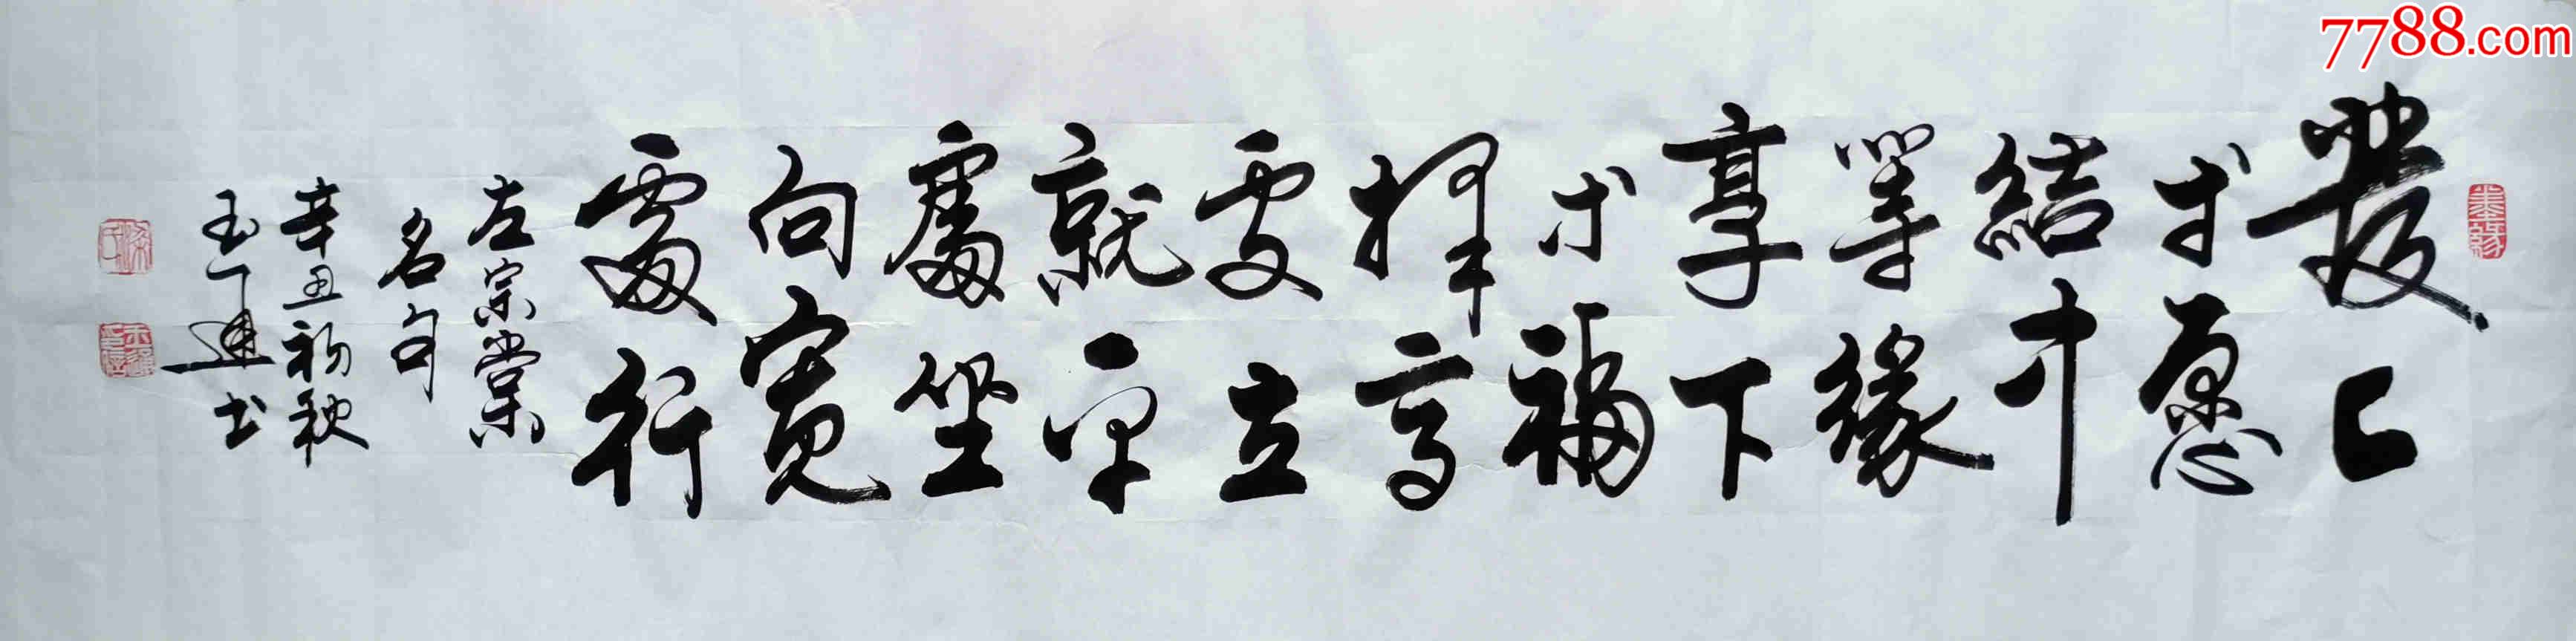 發上
等愿
結中
等緣
享下
等福
擇高
處立
就平
處坐
向寬
處行
左宗棠
名句
辛丑初秋
玉书
7788.com